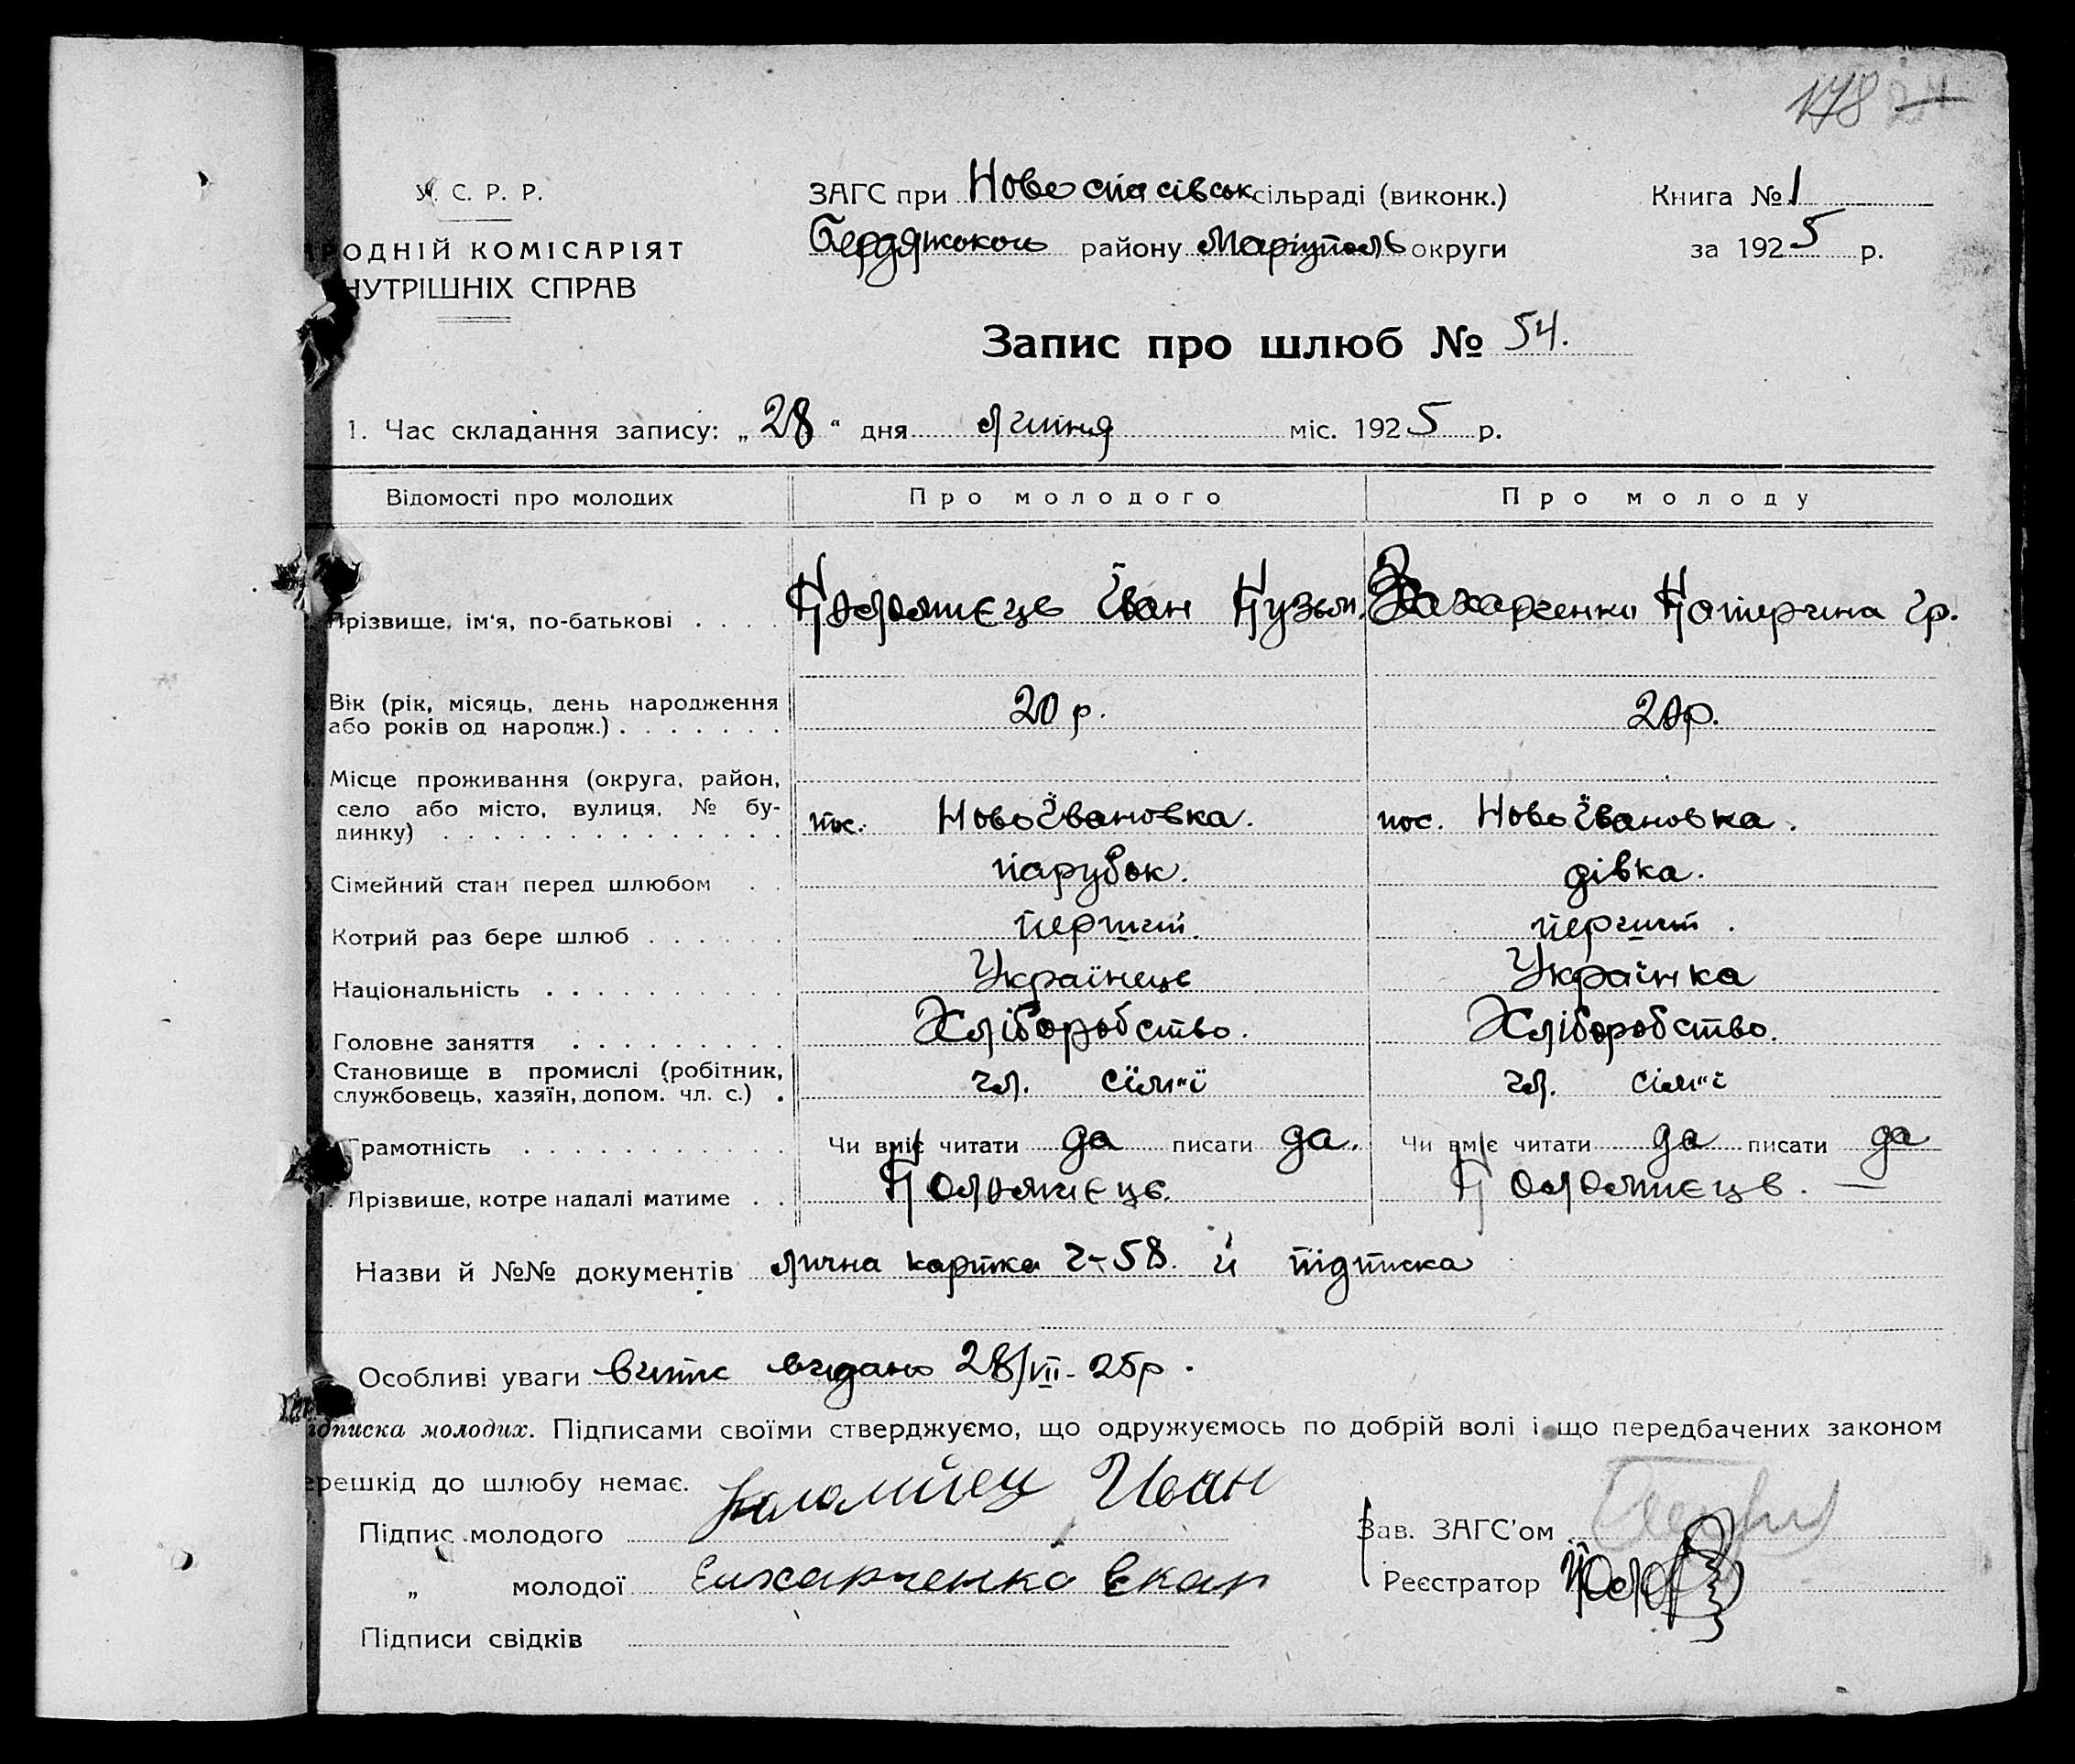 178 24
У. С. Р. Р.
РОДНІЙ КОМІСАРІЯТ
НУТРІШНІХ СПРАВ
ЗАГС при Новоспасівськ сільраді (виконк.)
Бердянского району Маріуполь округи
Книга № 1
за 1925 р.
Запис про шлюб № 54.
1. Час складання запису: „28“ дня липня міс. 1925 р.
Відомості про молодих Про молодого Про молоду
Прізвище, ім'я, по-батькові . . . . Коломієць Іван Кузьм. Захарченко Катерина Гр.
Вік (рік, місяць, день народження
або років од народж.) . . . . . . . 20 р. 20р.
Місце проживання (округа, район,
село або місто, вулиця, № бу-
динку) . . . . . . . . . . . . . . пос. Новоївановка. пос. Новоївановка.
Сімейний стан перед шлюбом . . парубок. дівка.
Котрий раз бере шлюб . . . . . . перший. перший.
Національність . . . . . . . . . . Українець Українка
Головне заняття . . . . . . . . . Хліборобство. Хліборобство.
Становище в промислі (робітник,
службовець, хазяїн, допом. чл. с.) . чл. сїм"ї чл. сім"ї
Грамотність . . . . . . . . . . . Чи вміє читати да писати да. Чи вміє читати да писати да
Прізвище, котре надалі матиме . . Коломиєць. Коломиєць. —
Назви й №№ документів лична картка ч-58. й підписка
Особливі уваги витяг видано 28/VII-25р.
ідписка молодих. Підписами своїми стверджуємо, що одружуємось по добрій волі і що передбачених законом
ерешкід до шлюбу немає.
Підпис молодого Коломиец Иван
„ молодої Захарченко Екат
Підписи свідків
Зав. ЗАГС'ом
Реєстратор